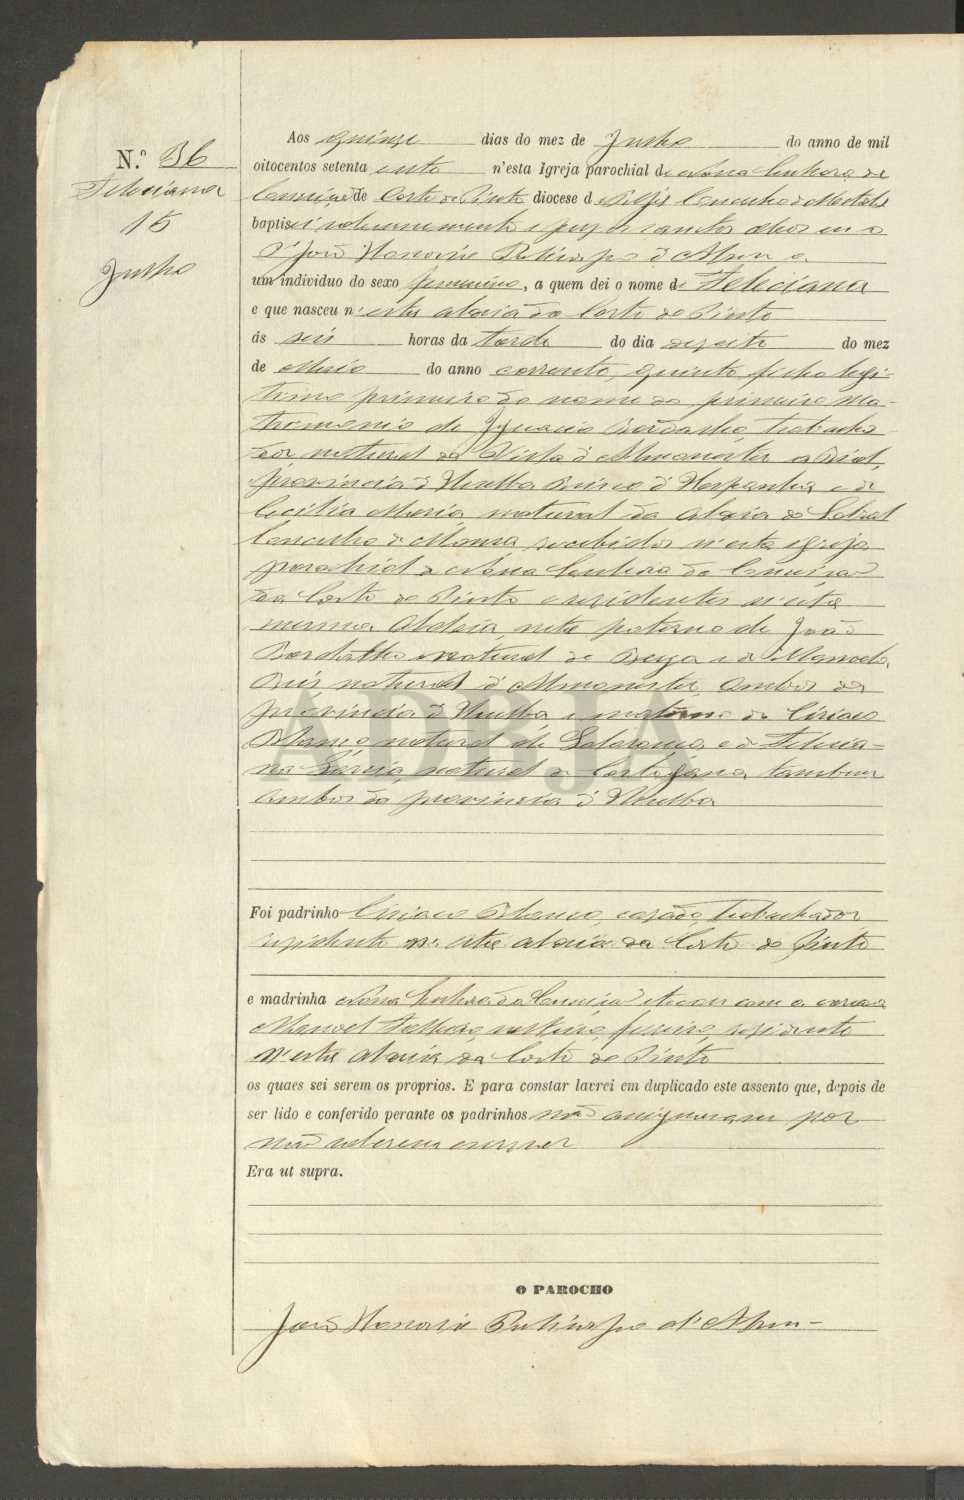 N.º 36
Feleciana
15
Junho
Aos quinze dias do mez de Junho do anno de mil
oitocentos setenta outo n'esta Igreja parochial de Nossa Senhora da
Conceição de Corte do Pinto diocese de Beja Concelho de Mertola
baptisei solemnemente e puz os santos oleos eu o
P.e João Honorio
um individuo do sexo femenino, a quem dei o nome de Feleciana
e que nasceu n'esta aldeia da Corte do Pinto
ás seis horas da tarde do dia do mez
de Maio do anno corrente, quinto filho legi-
timo primeiro do nome do primeiro ma-
tremonio de Ignacio Bordalho, trabalha-
dor natural da Villa d'Almonaster a Rial,
provincia d'Huelba Reino d'Hespanha e de
Cecilia Maria, natural da aldeia do Sobral
Concelho de Moura recebidos n'esta egreja
parochial de Nossa Senhora da Conceição
da Corte do Pinto e residentes n'esta
mesma aldeia, neta paterna de João
Bordalho natural de e de Manoela
natural d'Almonaster, ambos da
provincia d'Huelba e materna de Ciriaco
natural de e de Felicia-
na Garcia, natural de Cortegana tambem
ambos da provincia d'Huelba
Foi padrinho Ciriaco casado, trabalhador
residente n'esta aldeia da Corte do Pinto
e madrinha Nossa Senhora da Conceição tocou com a coroa
Manoel solteiro residente
n'esta aldeia da Corte do Pinto
os quaes sei serem os proprios. E para constar lavrei em duplicado este assento que, depois de
ser lido e conferido perante os padrinhos não assignaram por
não saberem escrever
Era ut supra.
O PAROCHO
João Honorio
ADBJA